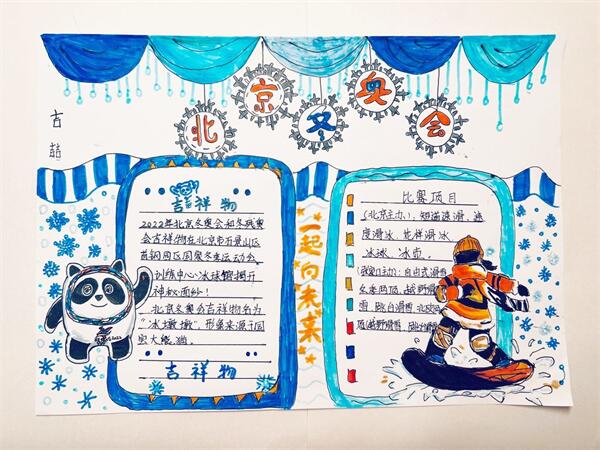 北京冬奥会
吉
喆
吉祥物
2022年北京冬奥会和冬残奥
会吉祥物在北京市石景山区
首钢园区国家冬季运动会
训练中心冰球馆揭开
神秘面纱!
北京冬奥会吉祥物名为
“冰墩墩”,形象来源于国
宝大熊猫。
吉祥物
一起向未来
比赛项目
(北京主办)、短道速滑、速
度滑冰、花样滑冰
冰球、冰壶。
自由式滑
冬季两项、越野滑
雪、跳台滑雪、北欧
越野滑雪、